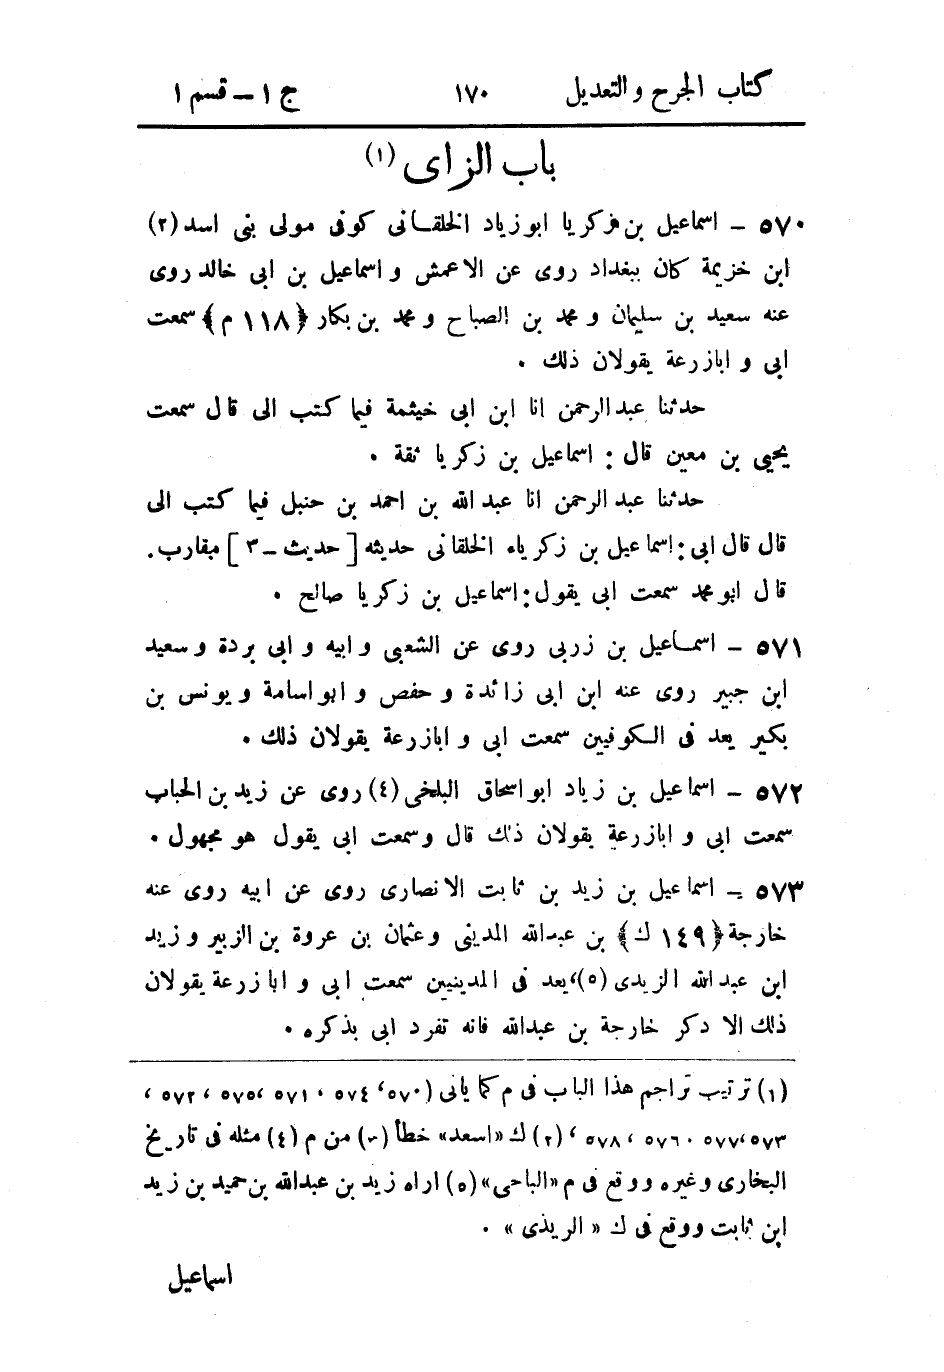 كتاب الجرح والتعديل ١٧٠ ج ١ – قسم ١
باب الزاى (١)
٥٧٠ – اسماعيل بن زكريا ابو زياد الخلقانى كوفى مولى بنى اسد (٢)
ابن خزيمة كان ببغداد روى عن الاعمش واسماعيل بن ابى خالد روى
عنه سعيد بن سليمان ومحمد بن الصباح ومحمد بن بكار ﴿١١٨ م﴾ سمعت
ابى وابا زرعة يقولان ذلك .
حدثنا عبد الرحمن انا ابن ابى خيثمة فيما كتب الى قال سمعت
يحيى بن معين قال : اسماعيل بن زكريا ثقة .
حدثنا عبد الرحمن انا عبد الله بن احمد بن حنبل فيما كتب الى
قال قال ابى : اسماعيل بن زكرياء الخلقانى حديثه [ حديث – ٣ ] مقارب .
قال ابو محمد سمعت ابى يقول : اسماعيل بن زكريا صالح .
٥٧١ – اسماعيل بن زربى روى عن الشعبى وابيه وابى بردة وسعيد
ابن جبير روى عنه ابن ابى زائدة وحفص وابو اسامة ويونس بن
بكير يعد فى الكوفيين سمعت ابى وابا زرعة يقولان ذلك .
٥٧٢ – اسماعيل بن زياد ابو اسحاق البلخى (٤) روى عن زيد بن الحباب
سمعت ابى وابا زرعة يقولان ذلك قال وسمعت ابى يقول هو مجهول .
٥٧٣ – اسماعيل بن زيد بن ثابت الانصارى روى عن ابيه روى عنه
خارجة ﴿١٤٩ ك﴾ بن عبد الله المدينى وعثمان بن عروة بن الزبير وزيد
ابن عبد الله الزيدى (٥) ، يعد فى المدينيين سمعت ابى وابا زرعة يقولان
ذلك الا ذكر خارجة بن عبد الله فانه تفرد ابى بذكره .
(١) ترتيب تراجم هذا الباب فى م كما يأتى (٥٧٠ ، ٥٧٤ ، ٥٧١ ، ٥٧٥ ، ٥٧٢ ،
٥٧٣ ، ٥٧٧ ، ٥٧٦ ، ٥٧٨ ، (٢) ك «اسعد» خطأ (٣) من م (٤) مثله فى تاريخ
البخارى وغيره ووقع فى م «الباحى» (٥) اراه زيد بن عبد الله بن حميد بن زيد
ابن ثابت ووقع فى ك « الريذى » .
اسماعيل